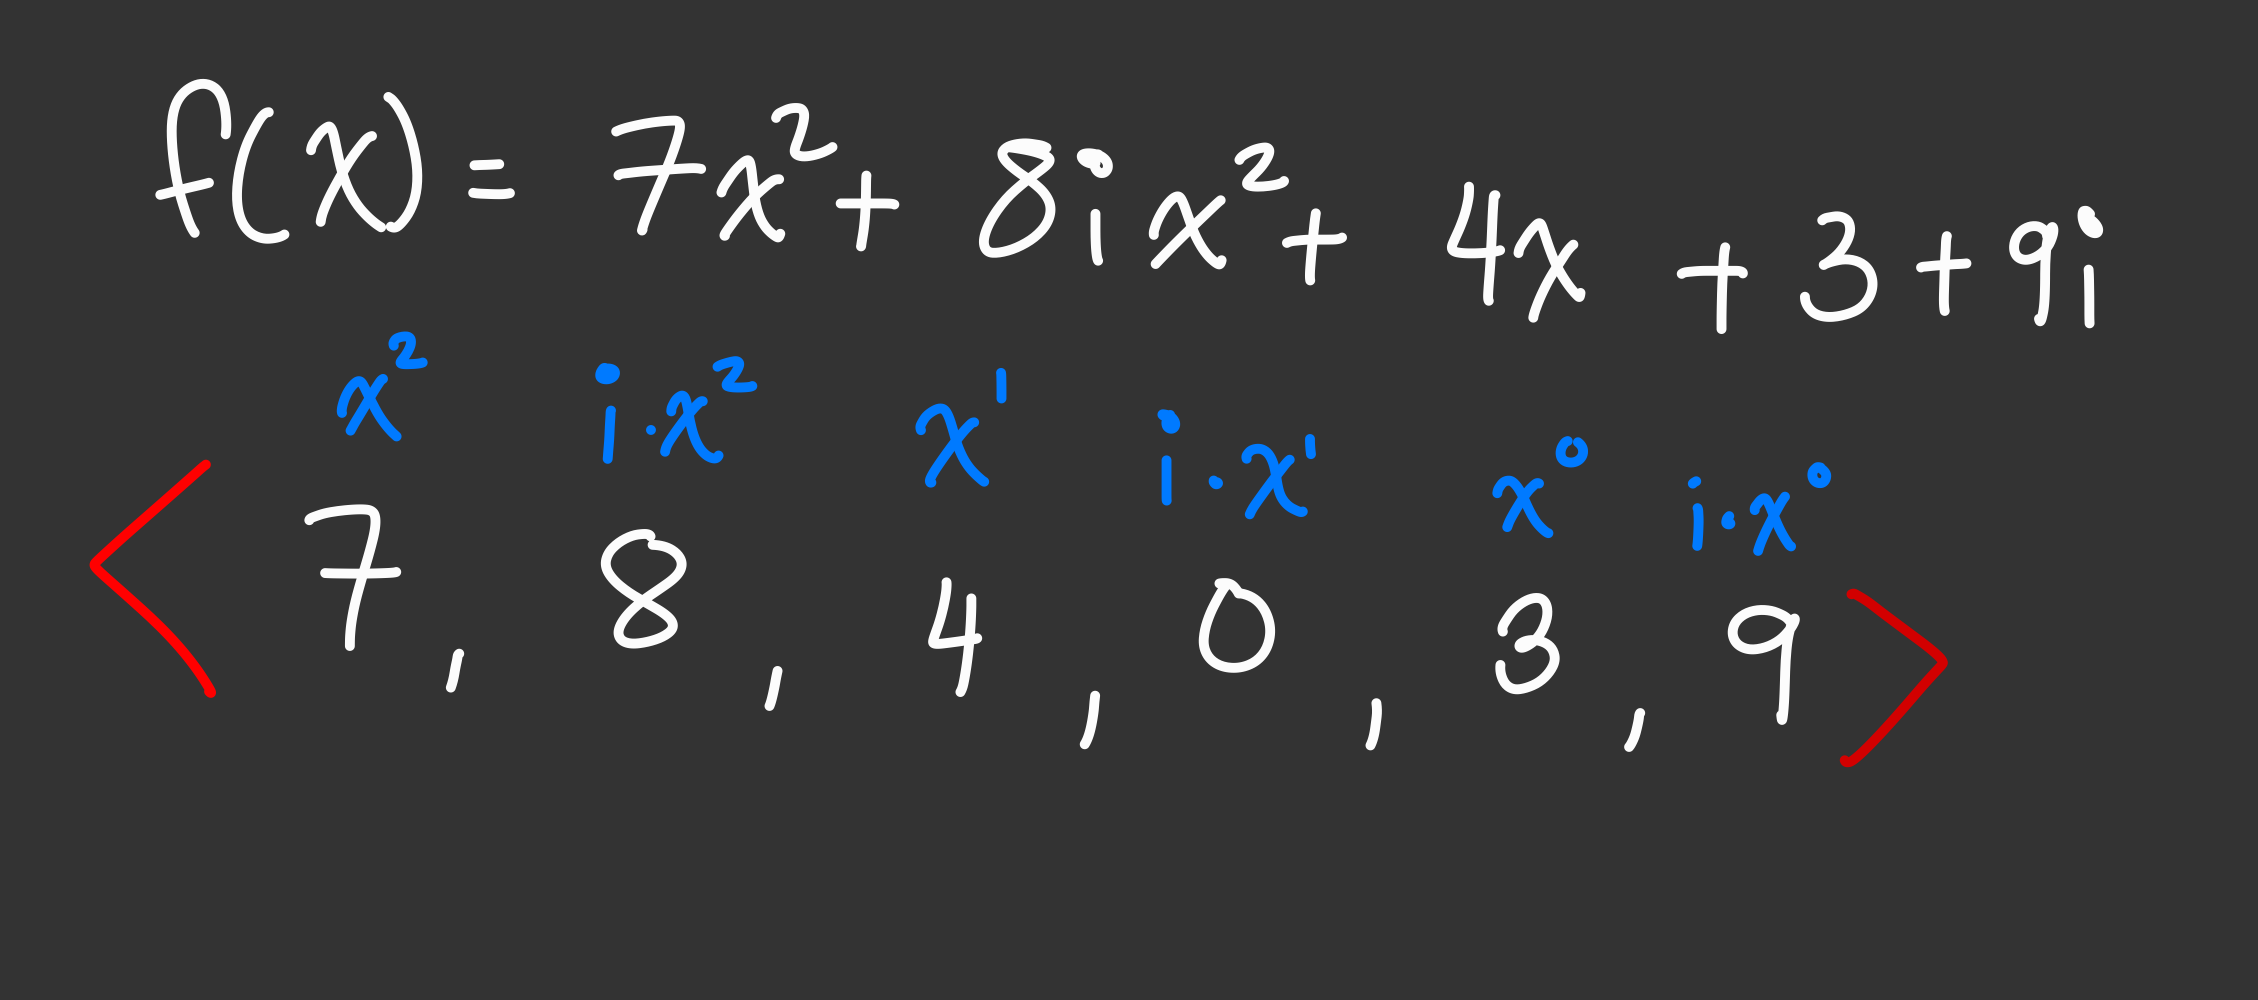 f(x) = 7x² + 8ix² + 4x + 3 + 9i
x² i·x² x¹ i·x¹ x⁰ i·x⁰
< 7 , 8 , 4 , 0 , 3 , 9 >